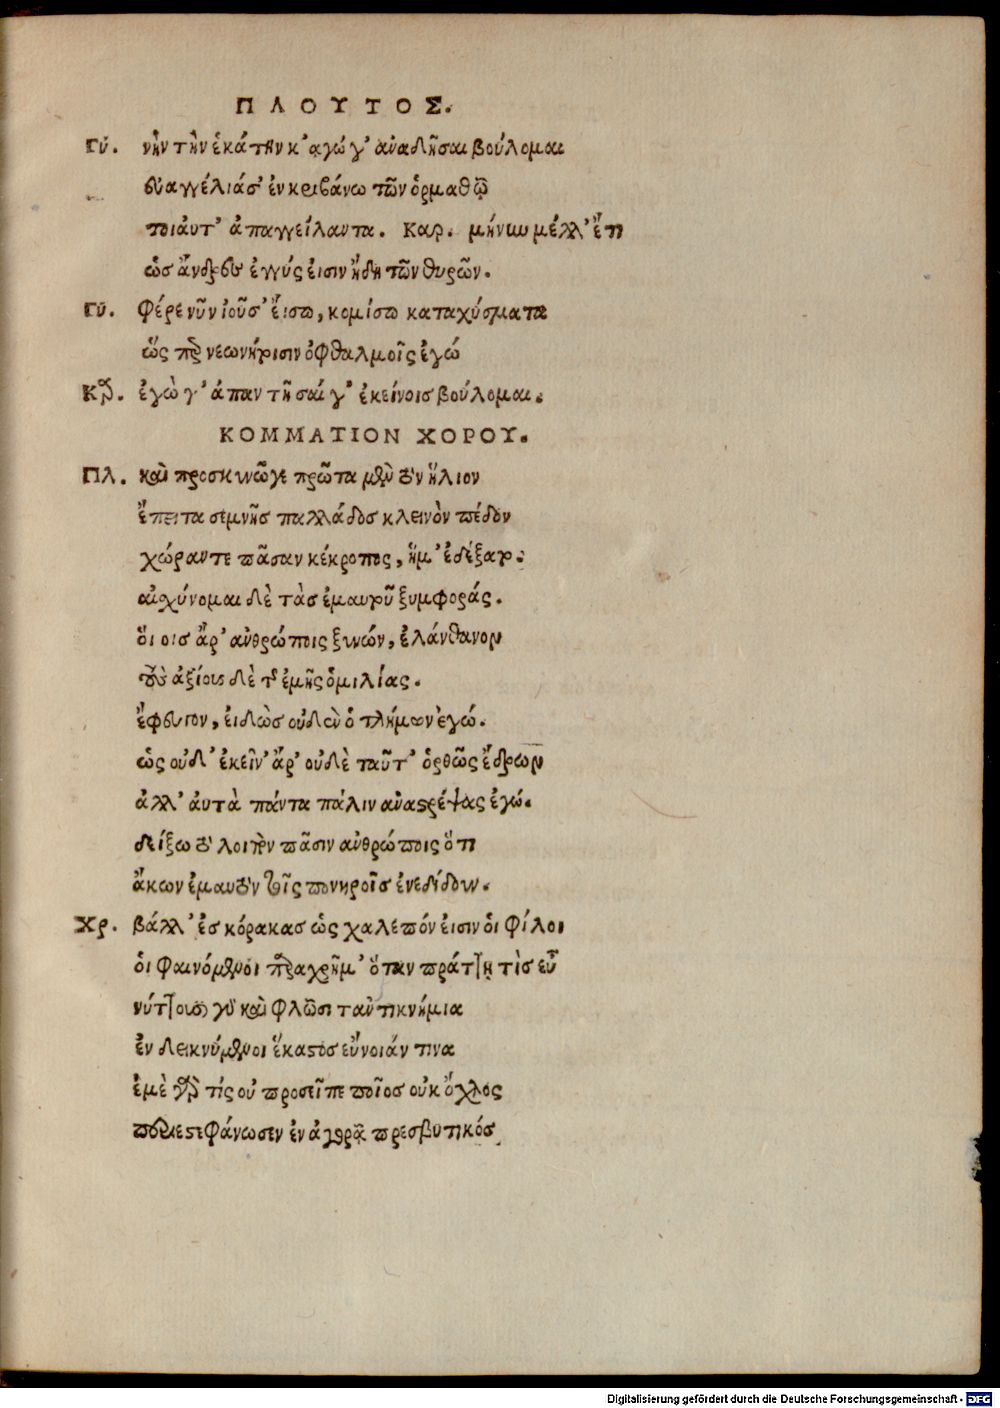 ΠΛΟΥΤΟΣ.
Γύ. νὴν τὴν ἑκάτην κ' αγώ γ' ἀναδῆσαι βούλομαι
ευαγγέλιάσ' ἐν κριβάνω τῶν ὁρμαθῷ
τοιαυτ' ἀπαγγείλαντα. Καρ. μήνυν μέλλ' ἔτι
ὡσ ἄνδρεσ ἐγγύς ἐισιν ἤδη τῶν θυρῶν.
Γύ. φέρε νῦν ἰοῦσ' ἔισω, κομίσω καταχύσματα
ὥς περ νεωνήρισιν ὀφθαλμοῖς ἐγώ
Κρ. ἐγὼ γ' ἁπαντῆσαί γ' ἐκείνοισ βούλομαι.
ΚΟΜΜΑΤΙΟΝ ΧΟΡΟΥ.
Πλ. καὶ προσκυνῶγε πρῶτα μὲν τὸν ἥλιον
ἔπειτα σεμνῆσ παλλάδοσ κλεινὸν πέδον
χώραντε πᾶσαν κέκροπος, ἥμ' ἐδέξατο.
αἰσχύνομαι δὲ τὰσ ἐμαυτοῦ ξυμφοράς.
ὅι οισ ἄρ' ἀνθρώποις ξυνών, ἐλάνθανον
τοὺς ἀξίους δὲ τῆς ἐμῆς ὁμιλίας.
ἔφευγον, ἐιδὼσ οὐδὲν ὁ τλήμων ἐγώ.
ὡς οὐδ' ἐκεῖν' ἄρ' οὐδὲ ταῦτ' ὀρθῶς ἔδρων
ἀλλ' ἀυτὰ πάντα πάλιν ἀναστρέψας ἐγώ.
δείξω τὸ λοιπὸν πᾶσιν ἀνθρώποις ὅτι
ἄκων ἐμαυτὸν τοῖς πονηροῖσ ἐνεδίδουν.
Χρ. βάλλ' ἐσ κόρακασ ὡς χαλεπόν ἐισιν ὁι φίλοι
ὁι φαινόμενοι παραχρῆμ' ὅταν πράττῃ τὶσ εὖ
νύττουσι γὰρ καὶ φλῶσι τἀντικνήμια
ἐν δεικνύμενοι ἕκαστοσ εὔνοιάν τινα
ἐμὲ γὰρ τίς οὐ προσεῖπε ποῖοσ οὐκ ὄχλος
περιεστεφάνωσεν ἐν ἀγορᾷ πρεσβυτικόσ
Digitalisierung gefördert durch die Deutsche Forschungsgemeinschaft - DFG